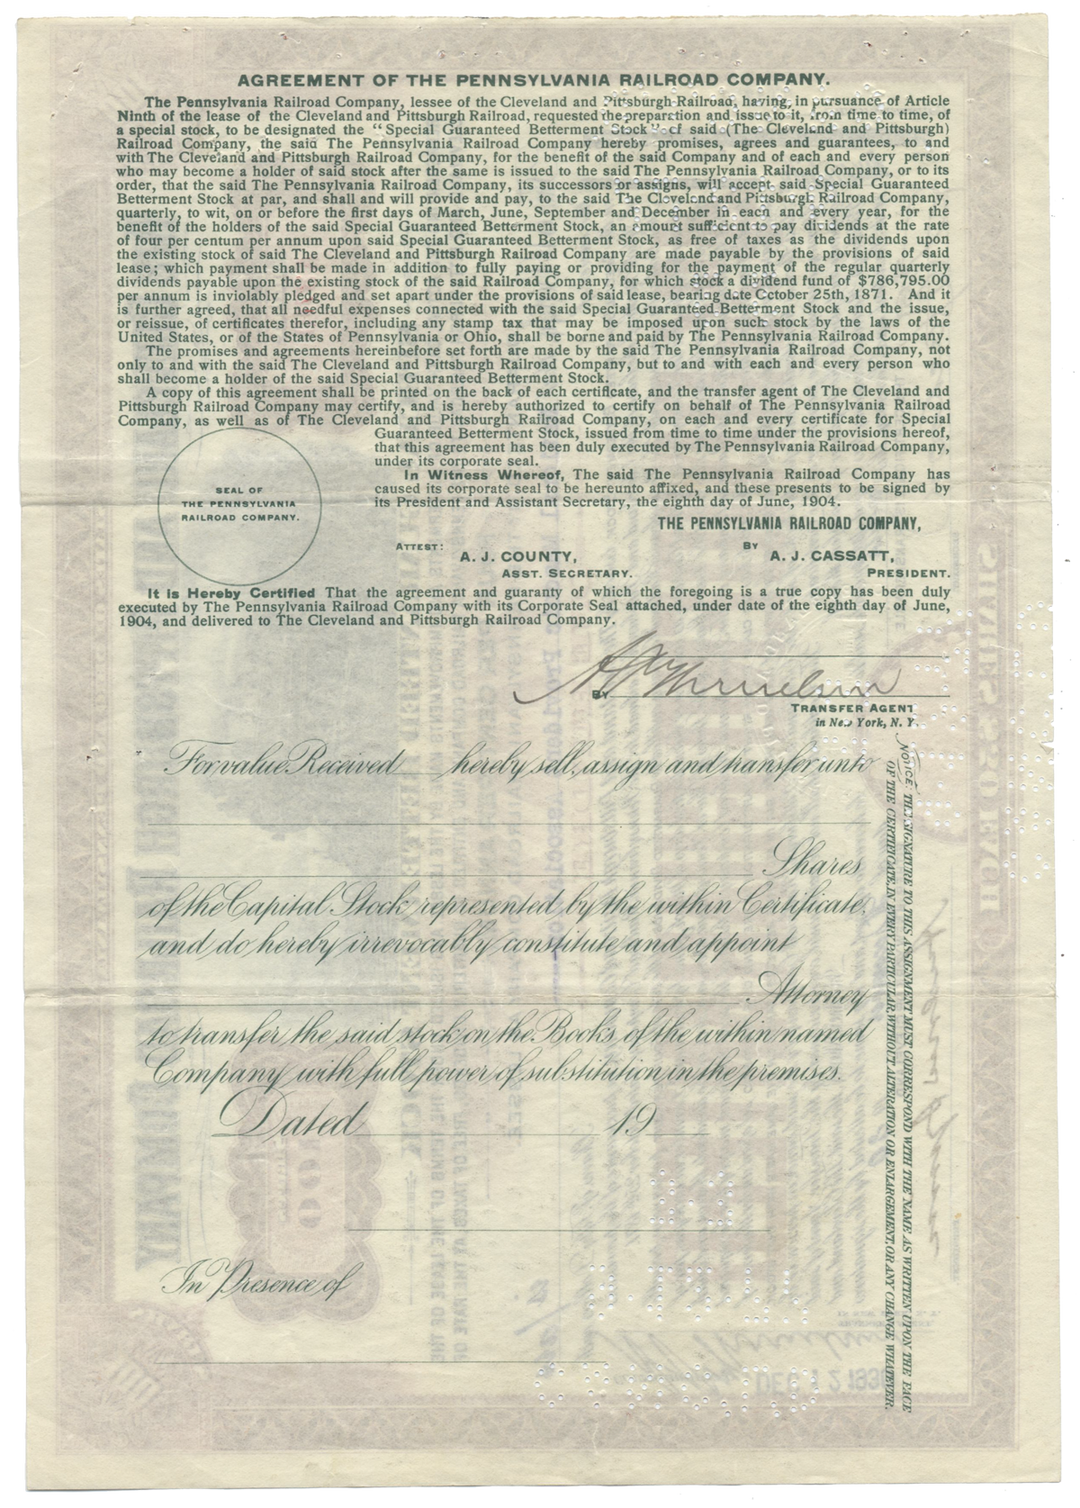 AGREEMENT OF THE PENNSYLVANIA RAILROAD COMPANY.
The Pennsylvania Railroad Company, lessee of the Cleveland and Pittsburgh Railroad, having, in pursuance of Article
Ninth of the lease of the Cleveland and Pittsburgh Railroad, requested the preparation and issue to it, from time to time, of
a special stock, to be designated the "Special Guaranteed Betterment Stock" of said (The Cleveland and Pittsburgh)
Railroad Company, the said The Pennsylvania Railroad Company hereby promises, agrees and guarantees, to and
with The Cleveland and Pittsburgh Railroad Company, for the benefit of the said Company and of each and every person
who may become a holder of said stock after the same is issued to the said The Pennsylvania Railroad Company, or to its
order, that the said The Pennsylvania Railroad Company, its successors or assigns, will accept said Special Guaranteed
Betterment Stock at par, and shall and will provide and pay, to the said The Cleveland and Pittsburgh Railroad Company,
quarterly, to wit, on or before the first days of March, June, September and December in each and every year, for the
benefit of the holders of the said Special Guaranteed Betterment Stock, an amount sufficient to pay dividends at the rate
of four per centum per annum upon said Special Guaranteed Betterment Stock, as free of taxes as the dividends upon
the existing stock of said The Cleveland and Pittsburgh Railroad Company are made payable by the provisions of said
lease; which payment shall be made in addition to fully paying or providing for the payment of the regular quarterly
dividends payable upon the existing stock of the said Railroad Company, for which stock a dividend fund of $786,795.00
per annum is inviolably pledged and set apart under the provisions of said lease, bearing date October 25th, 1871. And it
is further agreed, that all needful expenses connected with the said Special Guaranteed Betterment Stock and the issue,
or reissue, of certificates therefor, including any stamp tax that may be imposed upon such stock by the laws of the
United States, or of the States of Pennsylvania or Ohio, shall be borne and paid by The Pennsylvania Railroad Company.
The promises and agreements hereinbefore set forth are made by the said The Pennsylvania Railroad Company, not
only to and with the said The Cleveland and Pittsburgh Railroad Company, but to and with each and every person who
shall become a holder of the said Special Guaranteed Betterment Stock.
A copy of this agreement shall be printed on the back of each certificate, and the transfer agent of The Cleveland and
Pittsburgh Railroad Company may certify, and is hereby authorized to certify on behalf of The Pennsylvania Railroad
Company, as well as of The Cleveland and Pittsburgh Railroad Company, on each and every certificate for Special
Guaranteed Betterment Stock, issued from time to time under the provisions hereof,
that this agreement has been duly executed by The Pennsylvania Railroad Company,
under its corporate seal.
In Witness Whereof, The said The Pennsylvania Railroad Company has
caused its corporate seal to be hereunto affixed, and these presents to be signed by
its President and Assistant Secretary, the eighth day of June, 1904.
SEAL OF
THE PENNSYLVANIA
RAILROAD COMPANY.
THE PENNSYLVANIA RAILROAD COMPANY,
ATTEST:
A. J. COUNTY,
ASST. SECRETARY.
BY
A. J. CASSATT,
PRESIDENT.
It is Hereby Certified That the agreement and guaranty of which the foregoing is a true copy has been duly
executed by The Pennsylvania Railroad Company with its Corporate Seal attached, under date of the eighth day of June,
1904, and delivered to The Cleveland and Pittsburgh Railroad Company.
BY
TRANSFER AGENT
in New York, N. Y.
For value Received hereby sell, assign and transfer unto
Shares
of the Capital Stock represented by the within Certificate,
and do hereby irrevocably constitute and appoint
Attorney
to transfer the said stock on the Books of the within named
Company with full power of substitution in the premises.
Dated 19
In Presence of
NOTICE THE SIGNATURE TO THIS ASSIGNMENT MUST CORRESPOND WITH THE NAME AS WRITTEN UPON THE FACE
OF THE CERTIFICATE, IN EVERY PARTICULAR WITHOUT ALTERATION OR ENLARGEMENT, OR ANY CHANGE WHATEVER.